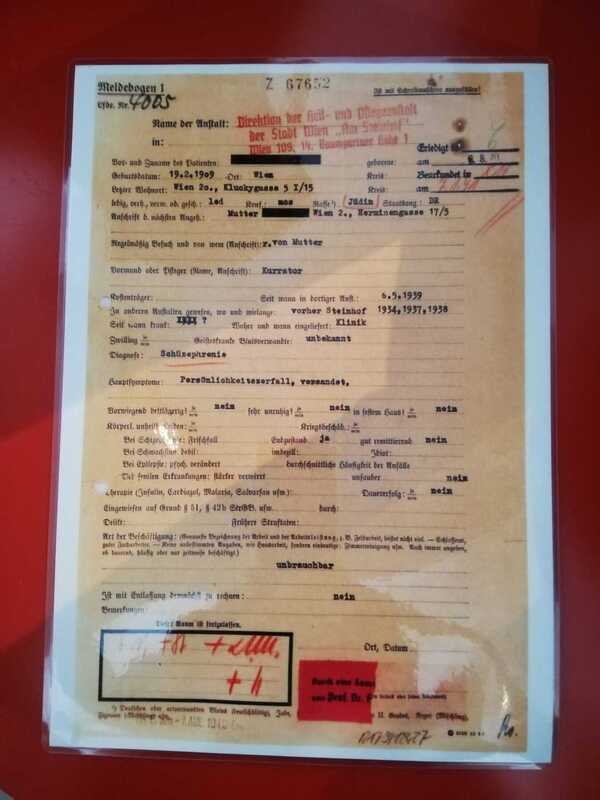 Meldebogen 1
Z 67652
Ist mit Schreibmaschine auszufüllen!
Lfde. Nr. 4005
Name der Anstalt: Direktion der Heil- und Pflegeanstalt
der Stadt Wien „Am Steinhof"
in: Wien 109, 14. Baumgartner Höhe 1
Erledigt
Vor- und Zuname des Patienten: geborene: am
Geburtsdatum: 19.2.1909 Ort: Wien Kreis: Beurkundet in
Letzter Wohnort: Wien 2o., Kluckygasse 5 I/15 Kreis: am
ledig, verh., verw. od. gesch.: led Konf.: mos Rasse¹) Jüdin Staatsang.: DR
Anschrift d. nächsten Angeh.: Mutter Wien 2., Herminengasse 17/5
Regelmäßig Besuch und von wem (Anschrift): r.von Mutter
Vormund oder Pfleger (Name, Anschrift): Kurrator
Kostenträger: Seit wann in dortiger Anst.: 6.5.1939
In anderen Anstalten gewesen, wo und wielange: vorher Steinhof 1934,1937,1938
Seit wann krank: ? Woher und wann eingeliefert: Klinik
Zwilling ja nein Geisteskranke Blutsverwandte: unbekannt
Diagnose: Schizephrenie
Hauptsymptome: Persönlichkeitszerfall, versandet,
Vorwiegend bettlägerig? ja nein nein sehr unruhig? ja nein nein in festem Haus? ja nein nein
Körperl. unheilb. Leiden: ja nein Kriegsbeschäd.: ja nein
Bei Schizophrenie: Frischfall Endzustand ja gut remittierend nein
Bei Schwachsinn: debil: imbezill: Idiot:
Bei Epilepsie: psych. verändert durchschnittliche Häufigkeit der Anfälle
Bei senilen Erkrankungen: stärker verwirrt unsauber nein
Therapie (Insulin, Cardiazol, Malaria, Salvarsan usw.): Dauererfolg: ja nein nein
Eingewiesen auf Grund § 51, § 42b StrGB. usw. durch:
Delikt: Frühere Straftaten:
Art der Beschäftigung: (Genaueste Bezeichnung der Arbeit und der Arbeitsleistung, z. B. Feldarbeit, leistet nicht viel. — Schlosserei,
guter Facharbeiter. — Keine unbestimmten Angaben, wie Hausarbeit, sondern eindeutige: Zimmerreinigung usw. Auch immer angeben,
ob dauernd, häufig oder nur zeitweise beschäftigt.)
unbrauchbar
Ist mit Entlassung demnächst zu rechnen: nein
Bemerkungen:
Dieser Raum ist freizulassen.
Ort, Datum
Durch eine
von Prof. Dr.
¹) Deutschen oder artverwandten Blutes (deutschblütig), Jude,